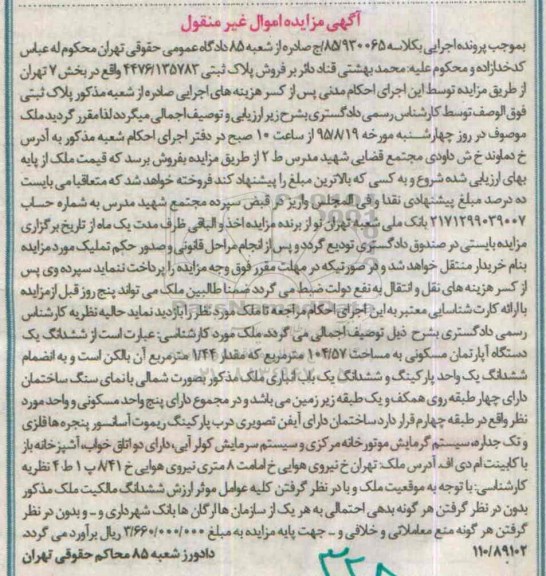 آگهی مزایده اموال غیر منقول
بموجب پرونده اجرایی بکلاسه ۸۵/۹۳۰۰۶۵/ج صادره از شعبه ۸۵ دادگاه عمومی حقوقی تهران محکوم له عباس
کدخدازاده و محکوم علیه: محمد بهشتی قناد دائر بر فروش پلاک ثبتی ۴۴۷۶/۱۳۵۷۸۳ واقع در بخش ۷ تهران
از طریق مزایده توسط این اجرای احکام مدنی پس از کسر هزینه های اجرایی صادره از شعبه مذکور پلاک ثبتی
فوق الوصف توسط کارشناس رسمی دادگستری بشرح زیر ارزیابی و توصیف اجمالی میگردد لذا مقرر گردید ملک
موصوف در روز چهارشنبه مورخه ۹۵/۸/۱۹ از ساعت ۱۰ صبح در دفتر اجرای احکام شعبه مذکور به آدرس
خ دماوند خ ش داودی مجتمع قضایی شهید مدرس ط ۲ از طریق مزایده بفروش برسد که قیمت ملک از پایه
بهای ارزیابی شده شروع و به کسی که بالاترین مبلغ را پیشنهاد کند فروخته خواهد شد که متعاقبا می بایست
ده درصد مبلغ پیشنهادی نقدا و فی المجلس واریز در قبض سپرده مجتمع شهید مدرس به شماره حساب
۲۱۷۱۲۹۹۰۳۹۰۰۷ بانک ملی شعبه تهران نو از برنده مزایده اخذ و الباقی ظرف مدت یک ماه از تاریخ برگزاری
مزایده بایستی در صندوق دادگستری تودیع گردد و پس از انجام مراحل قانونی و صدور حکم تملیک مورد مزایده
بنام خریدار منتقل خواهد شد و در صورتیکه در مهلت مقرر فوق وجه مزایده را پرداخت ننماید سپرده وی پس
از کسر هزینه های نقل و انتقال به نفع دولت ضبط می گردد ضمنا طالبین ملک می تواند پنج روز قبل از مزایده
با ارائه کارت شناسایی معتبر به این اجرای احکام مراجعه تا ملک مورد نظر را بازدید نماید حالیه نظریه کارشناس
رسمی دادگستری بشرح ذیل توصیف اجمالی می گردد. ملک مورد کارشناسی: عبارت است از ششدانگ یک
دستگاه آپارتمان مسکونی به مساحت ۱۰۴/۵۷ مترمربع که مقدار ۱/۴۴ مترمربع آن بالکن است و به انضمام
ششدانگ یک واحد پارکینگ و ششدانگ یک باب انباری ملک مذکور بصورت شمالی با نمای سنگ ساختمان
دارای چهار طبقه روی همکف و یک طبقه زیر زمین می باشد و در مجموع دارای پنج واحد مسکونی و واحد مورد
نظر واقع در طبقه چهارم قرار دارد ساختمان دارای آیفن تصویری درب پارکینگ ریموت آسانسور پنجره ها فلزی
و تک جداره، سیستم گرمایش موتورخانه مرکزی و سیستم سرمایش کولر آبی، دارای دو اتاق خواب، آشپزخانه باز
با کابینت ام دی اف. آدرس ملک: تهران خ نیروی هوایی خ امامت ۸ متری نیروی هوایی خ ۸۴۱ پ ۱ ط ۴ نظریه
کارشناسی: با توجه به موقعیت ملک و با در نظر گرفتن کلیه عوامل موثر ارزش ششدانگ مالکیت ملک مذکور
بدون در نظر گرفتن هر گونه بدهی احتمالی به هر یک از سازمان ها ارگان ها بانک شهرداری و ـ و بدون در نظر
گرفتن هر گونه منع معاملاتی و خلافی و ـ جهت پایه مزایده به مبلغ ۳/۶۶۰/۰۰۰/۰۰۰ ریال برآورد می گردد.
۱۱۰/۸۹۱۰۲ دادورز شعبه ۸۵ محاکم حقوقی تهران